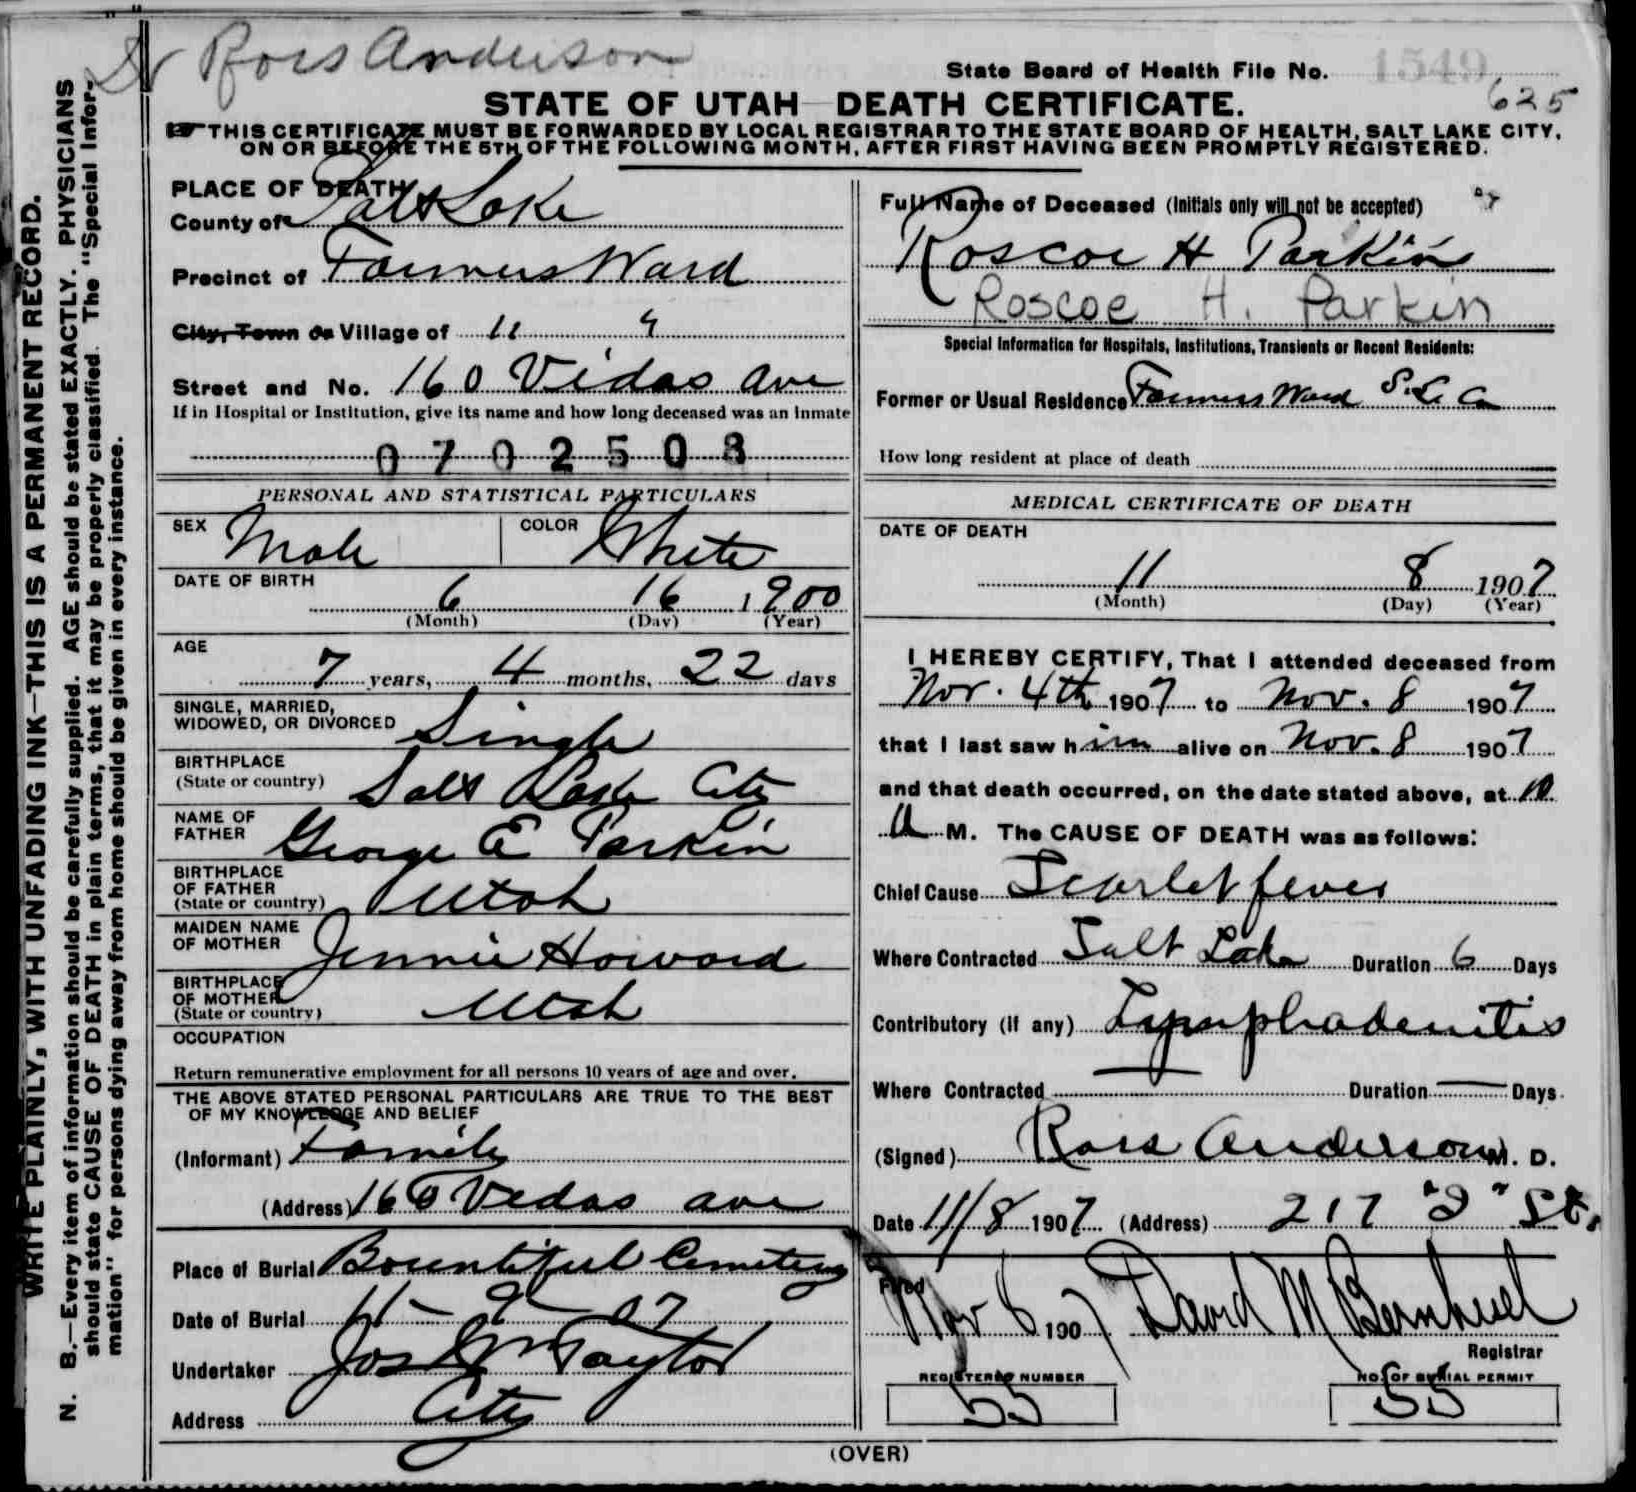 Dr Ross Anderson
State Board of Health File No. 1549
625
STATE OF UTAH—DEATH CERTIFICATE.
☞ THIS CERTIFICATE MUST BE FORWARDED BY LOCAL REGISTRAR TO THE STATE BOARD OF HEALTH, SALT LAKE CITY,
ON OR BEFORE THE 5TH OF THE FOLLOWING MONTH, AFTER FIRST HAVING BEEN PROMPTLY REGISTERED.
WRITE PLAINLY, WITH UNFADING INK—THIS IS A PERMANENT RECORD.
N. B.—Every item of information should be carefully supplied. AGE should be stated EXACTLY. PHYSICIANS
should state CAUSE OF DEATH in plain terms, that it may be properly classified. The "Special Infor-
mation" for persons dying away from home should be given in every instance.
PLACE OF DEATH
County of Salt Lake
Precinct of Farmers Ward
City, Town or Village of
Street and No. 160 Vidas Ave
If in Hospital or Institution, give its name and how long deceased was an Inmate
0702508
PERSONAL AND STATISTICAL PARTICULARS
SEX Male COLOR White
DATE OF BIRTH
6 16 1900
(Month) (Day) (Year)
AGE
7 years, 4 months, 22 days
SINGLE, MARRIED,
WIDOWED, OR DIVORCED Single
BIRTHPLACE
(State or country) Salt Lake City
NAME OF
FATHER George E Parkin
BIRTHPLACE
OF FATHER
(State or country) Utah
MAIDEN NAME
OF MOTHER Jennie Howard
BIRTHPLACE
OF MOTHER
(State or country) Utah
OCCUPATION
Return remunerative employment for all persons 10 years of age and over.
THE ABOVE STATED PERSONAL PARTICULARS ARE TRUE TO THE BEST
OF MY KNOWLEDGE AND BELIEF
(Informant) Family
(Address) 160 Vedas ave
Place of Burial Bountiful Cemetery
Date of Burial 11 - 9 - 07
Undertaker Jos Wm Taylor
Address City
Full Name of Deceased (Initials only will not be accepted)
Roscoe H Parkin
Roscoe H. Parkin
Special Information for Hospitals, Institutions, Transients or Recent Residents:
Former or Usual Residence Farmers Ward S. L. Co
How long resident at place of death
MEDICAL CERTIFICATE OF DEATH
DATE OF DEATH
11 8 1907
(Month) (Day) (Year)
I HEREBY CERTIFY, That I attended deceased from
Nov. 4th 1907 to Nov. 8 1907
that I last saw him alive on Nov. 8 1907
and that death occurred, on the date stated above, at 10
A M. The CAUSE OF DEATH was as follows:
Chief Cause Scarlet fever
Where Contracted Salt Lake Duration 6 Days
Contributory (if any) Lymphadenitis
Where Contracted — Duration — Days
(Signed) Ross Anderson M. D.
Date 11/8 1907 (Address) 217 "D" St.
Filed
Nov 8 1907 David M
Registrar
REGISTERED NUMBER
55
NO. OF BURIAL PERMIT
55
(OVER)